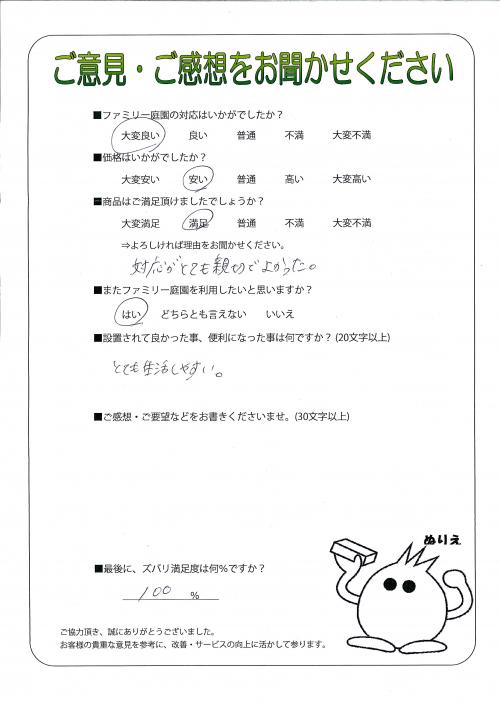 ご意見・ご感想をお聞かせください
■ファミリー庭園の対応はいかがでしたか？
大変良い 良い 普通 不満 大変不満
■価格はいかがでしたか？
大変安い 安い 普通 高い 大変高い
■商品はご満足頂けましたでしょうか？
大変満足 満足 普通 不満 大変不満
⇒よろしければ理由をお聞かせください。
対応がとても親切でよかった。
■またファミリー庭園を利用したいと思いますか？
はい どちらとも言えない いいえ
■設置されて良かった事、便利になった事は何ですか？(20文字以上)
とても生活しやすい。
■ご感想・ご要望などをお書きくださいませ。(30文字以上)
ぬりえ
■最後に、ズバリ満足度は何%ですか？
100 %
ご協力頂き、誠にありがとうございました。
お客様の貴重な意見を参考に、改善・サービスの向上に活かして参ります。